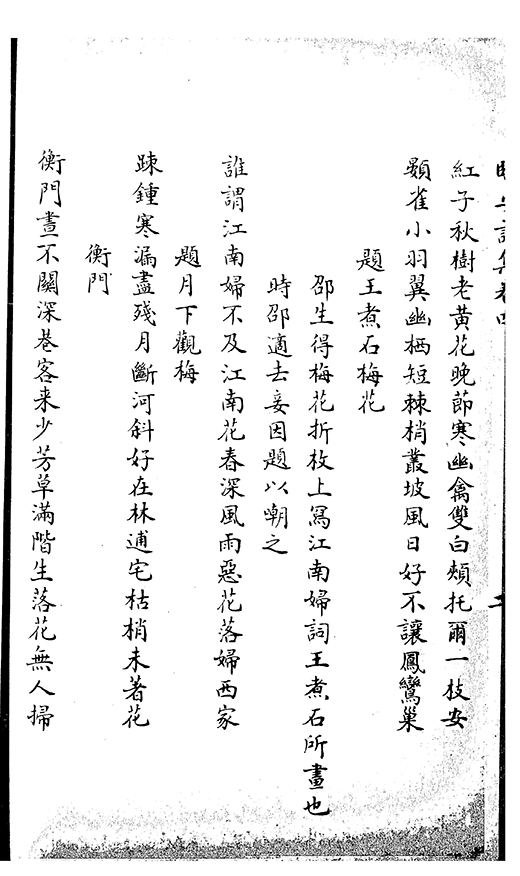 詩集卷四
紅子秋樹老黃花晚節寒幽禽雙白頰托爾一枝安
顋雀小羽翼幽栖短棘梢叢坡風日好不讓鳳鸞巢
題王煮石梅花
邵生得梅花折枚上寫江南婦詞王煮石所畫也
時邵適去妾因題以嘲之
誰謂江南婦不及江南花春深風雨惡花落婦西家
題月下觀梅
踈鍾寒漏盡殘月斷河斜好在林逋宅枯梢未著花
衡門
衡門晝不關深巷客来少芳草滿階生落花無人掃